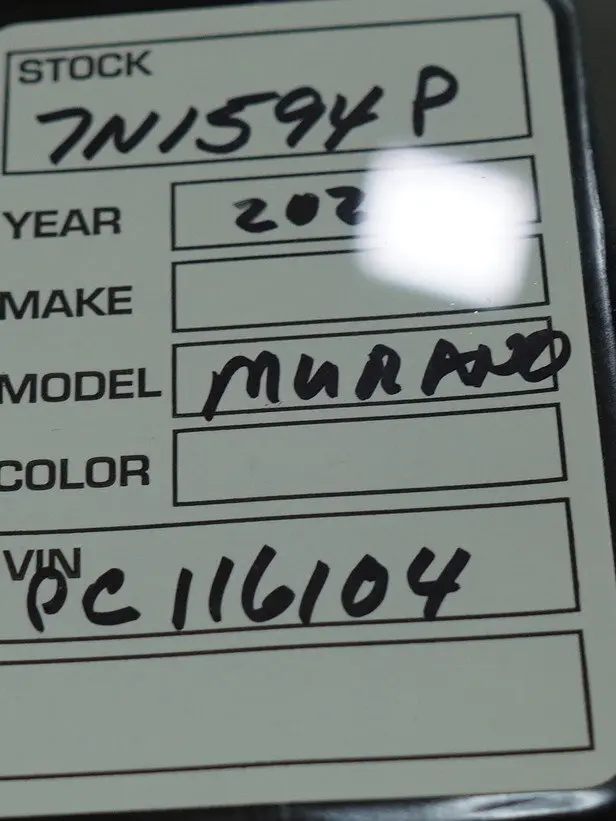 STOCK
7N1594P
YEAR 202
MAKE
MODEL MURANO
COLOR
VIN
PC116104